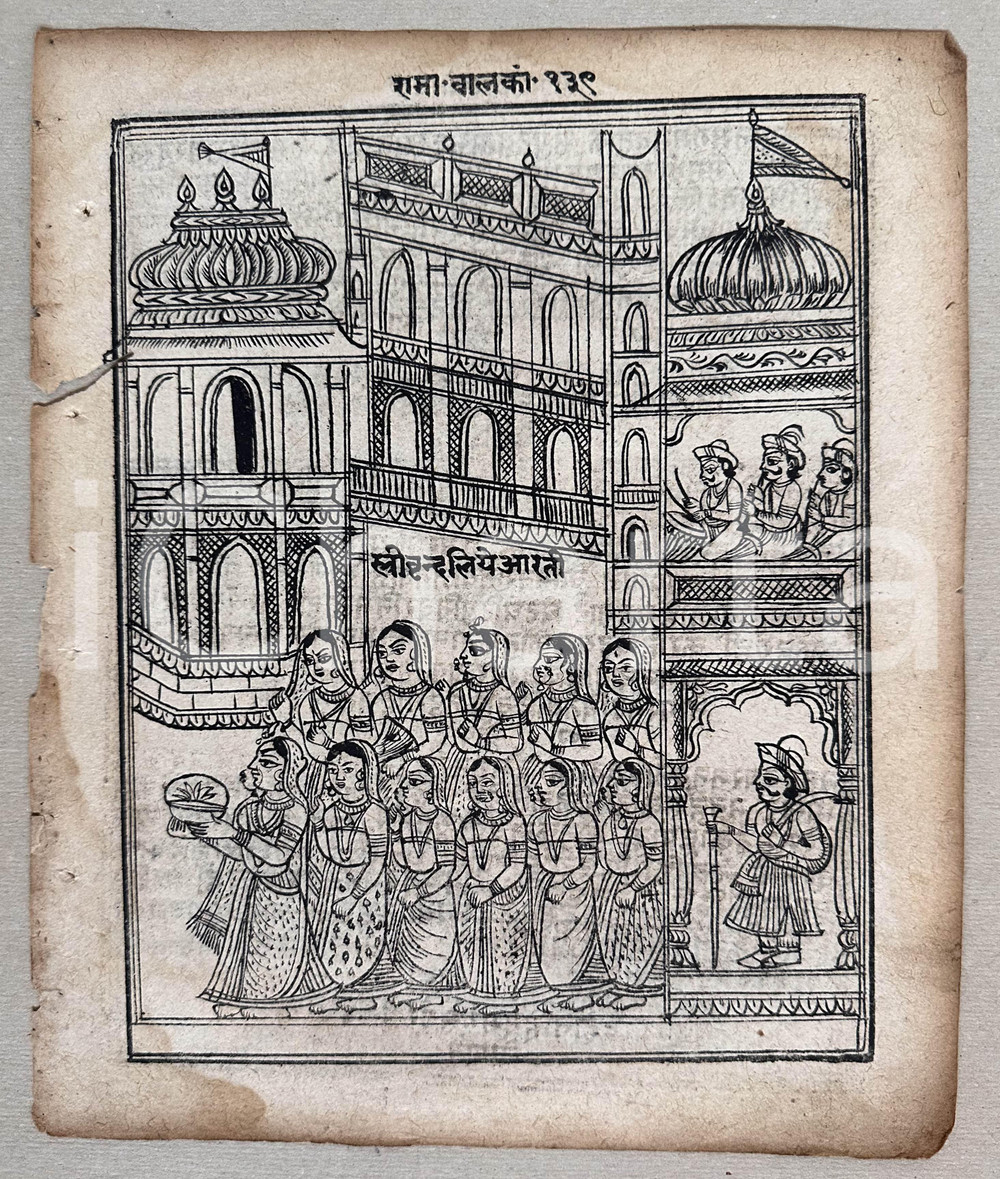 रामा॰बालकां॰ १३९
स्त्रीवृन्दलियेआरती